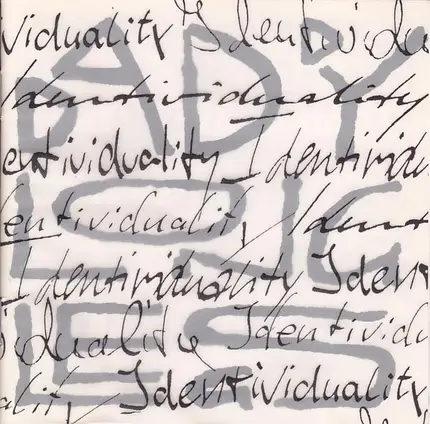 viduality Identividu
Identividuality
entividuality Identividu
entividuality Ident
Identividuality Ident
iduality Identividu
ality Identividuality
LONG
LEGS